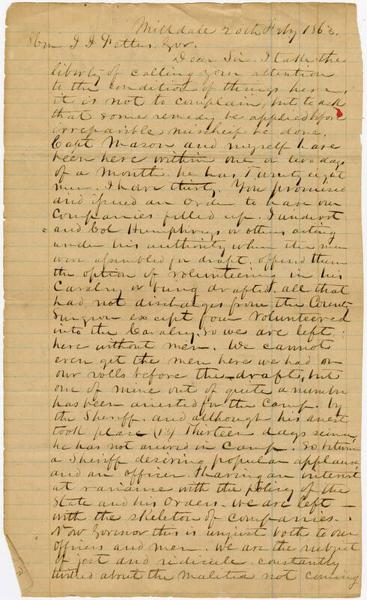 Milldale 20th Feby 1863.
Hon J J Pettus, Gov.
Dear Sir, I take the
liberty of calling your attention
to the condition of things here,
it is not to complain, but to ask
that some remedy be applied before
irreparible mischief be done.
Capt Mason and myself have
been here within one or two days
of a month. he has Twenty eight
men, I have thirty. You promised
and issued an order to have our
Companies filled up. I underst
and Col Humphreys or others acting
under his authority when the men
were assembled for draft, offered them
the option of volunteering in his
Cavalry or being drafted, all that
had not discharges from the County
Surgeon except four volunteered
into the Cavalry. so we are left
here without men. We cannot
even get the men here we had on
our rolls before the draft, but
one of mine out of quite a number
has been arrested for the Camp. by
the Sheriff and although his arrest
took place (13) Thirteen days since,
he has not arrived in Camp. So between
a Sheriff desiring popular applause
and an officer having an interest
at variance with the policy of the
State and his Orders. we are left
with the skeleton of companies.
Now Governor this is unjust both to our
officers and men. We are the subject
of jest and ridicule. constantly
about the Malitia not coming